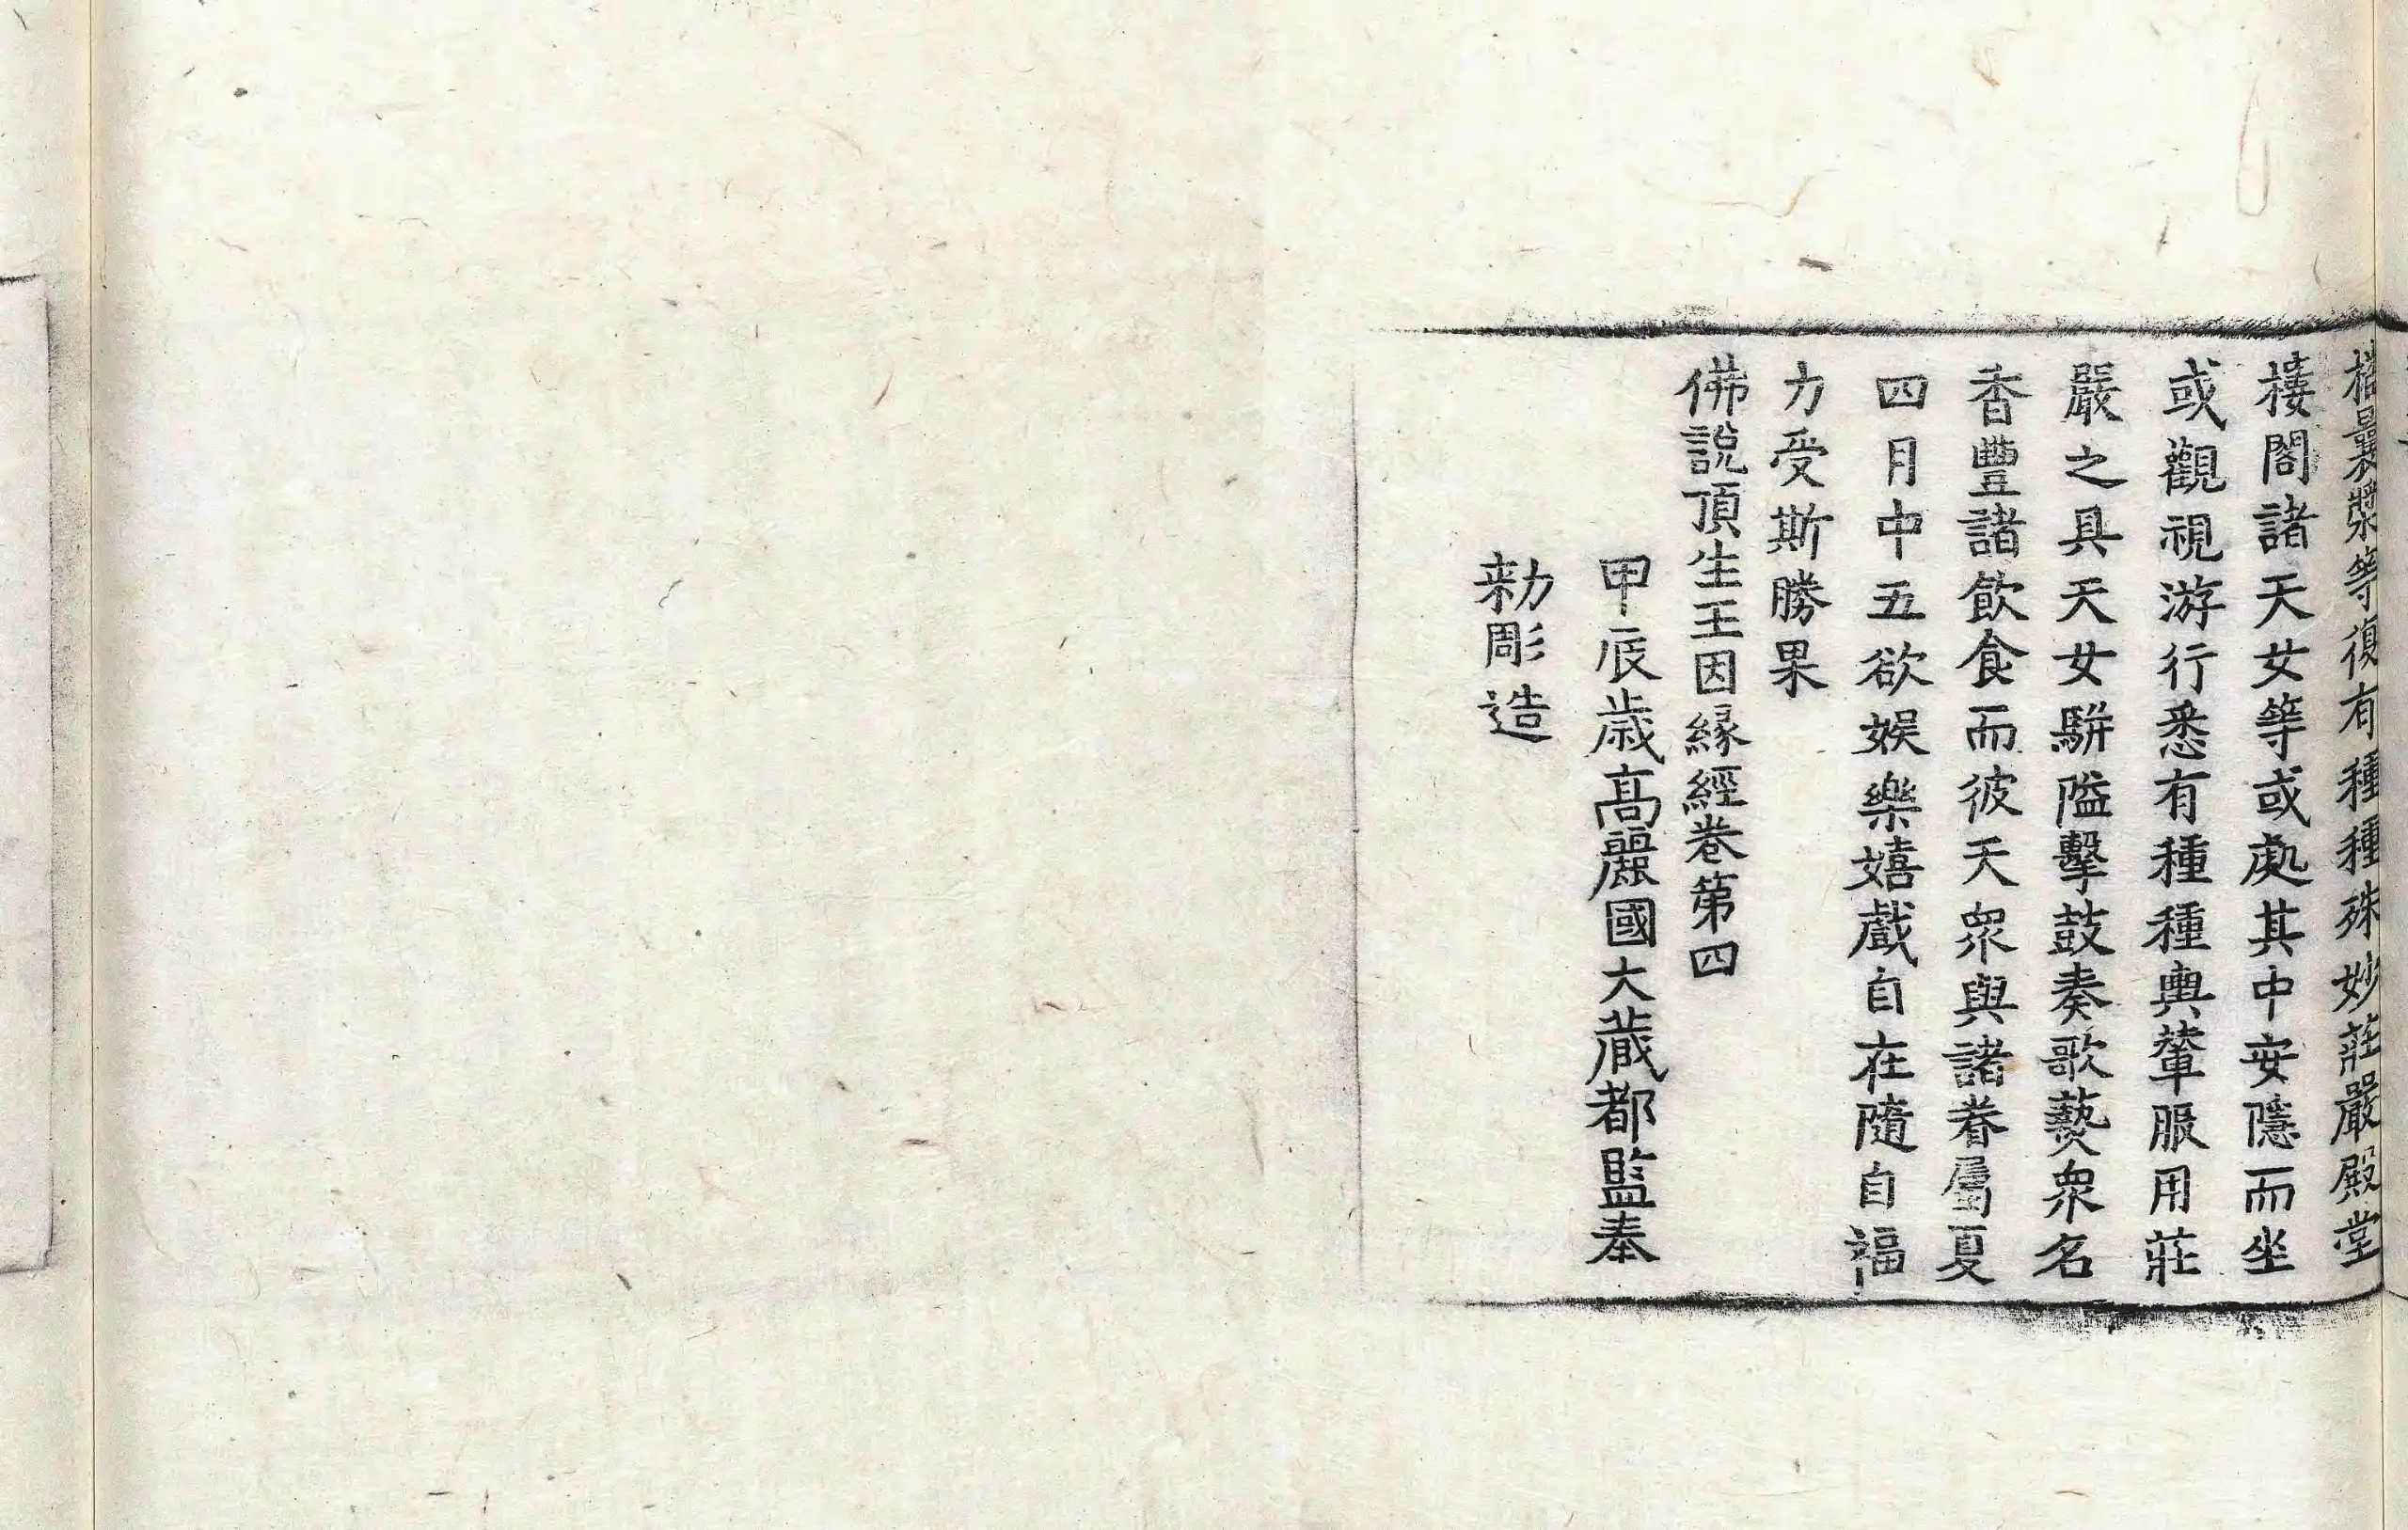 曩漿等復有種種殊妙莊嚴殿堂
樓閣諸天女等或處其中安隱而坐
或觀視游行悉有種種輿輦服用莊
嚴之具天女駢隘擊鼓奏歌藝衆名
香豐諸飲食而彼天衆與諸眷屬夏
四月中五欲娛樂嬉戲自在隨自福
力受斯勝果
佛說頂生王因緣經卷第四
甲辰歲高麗國大藏都監奉
勑彫造